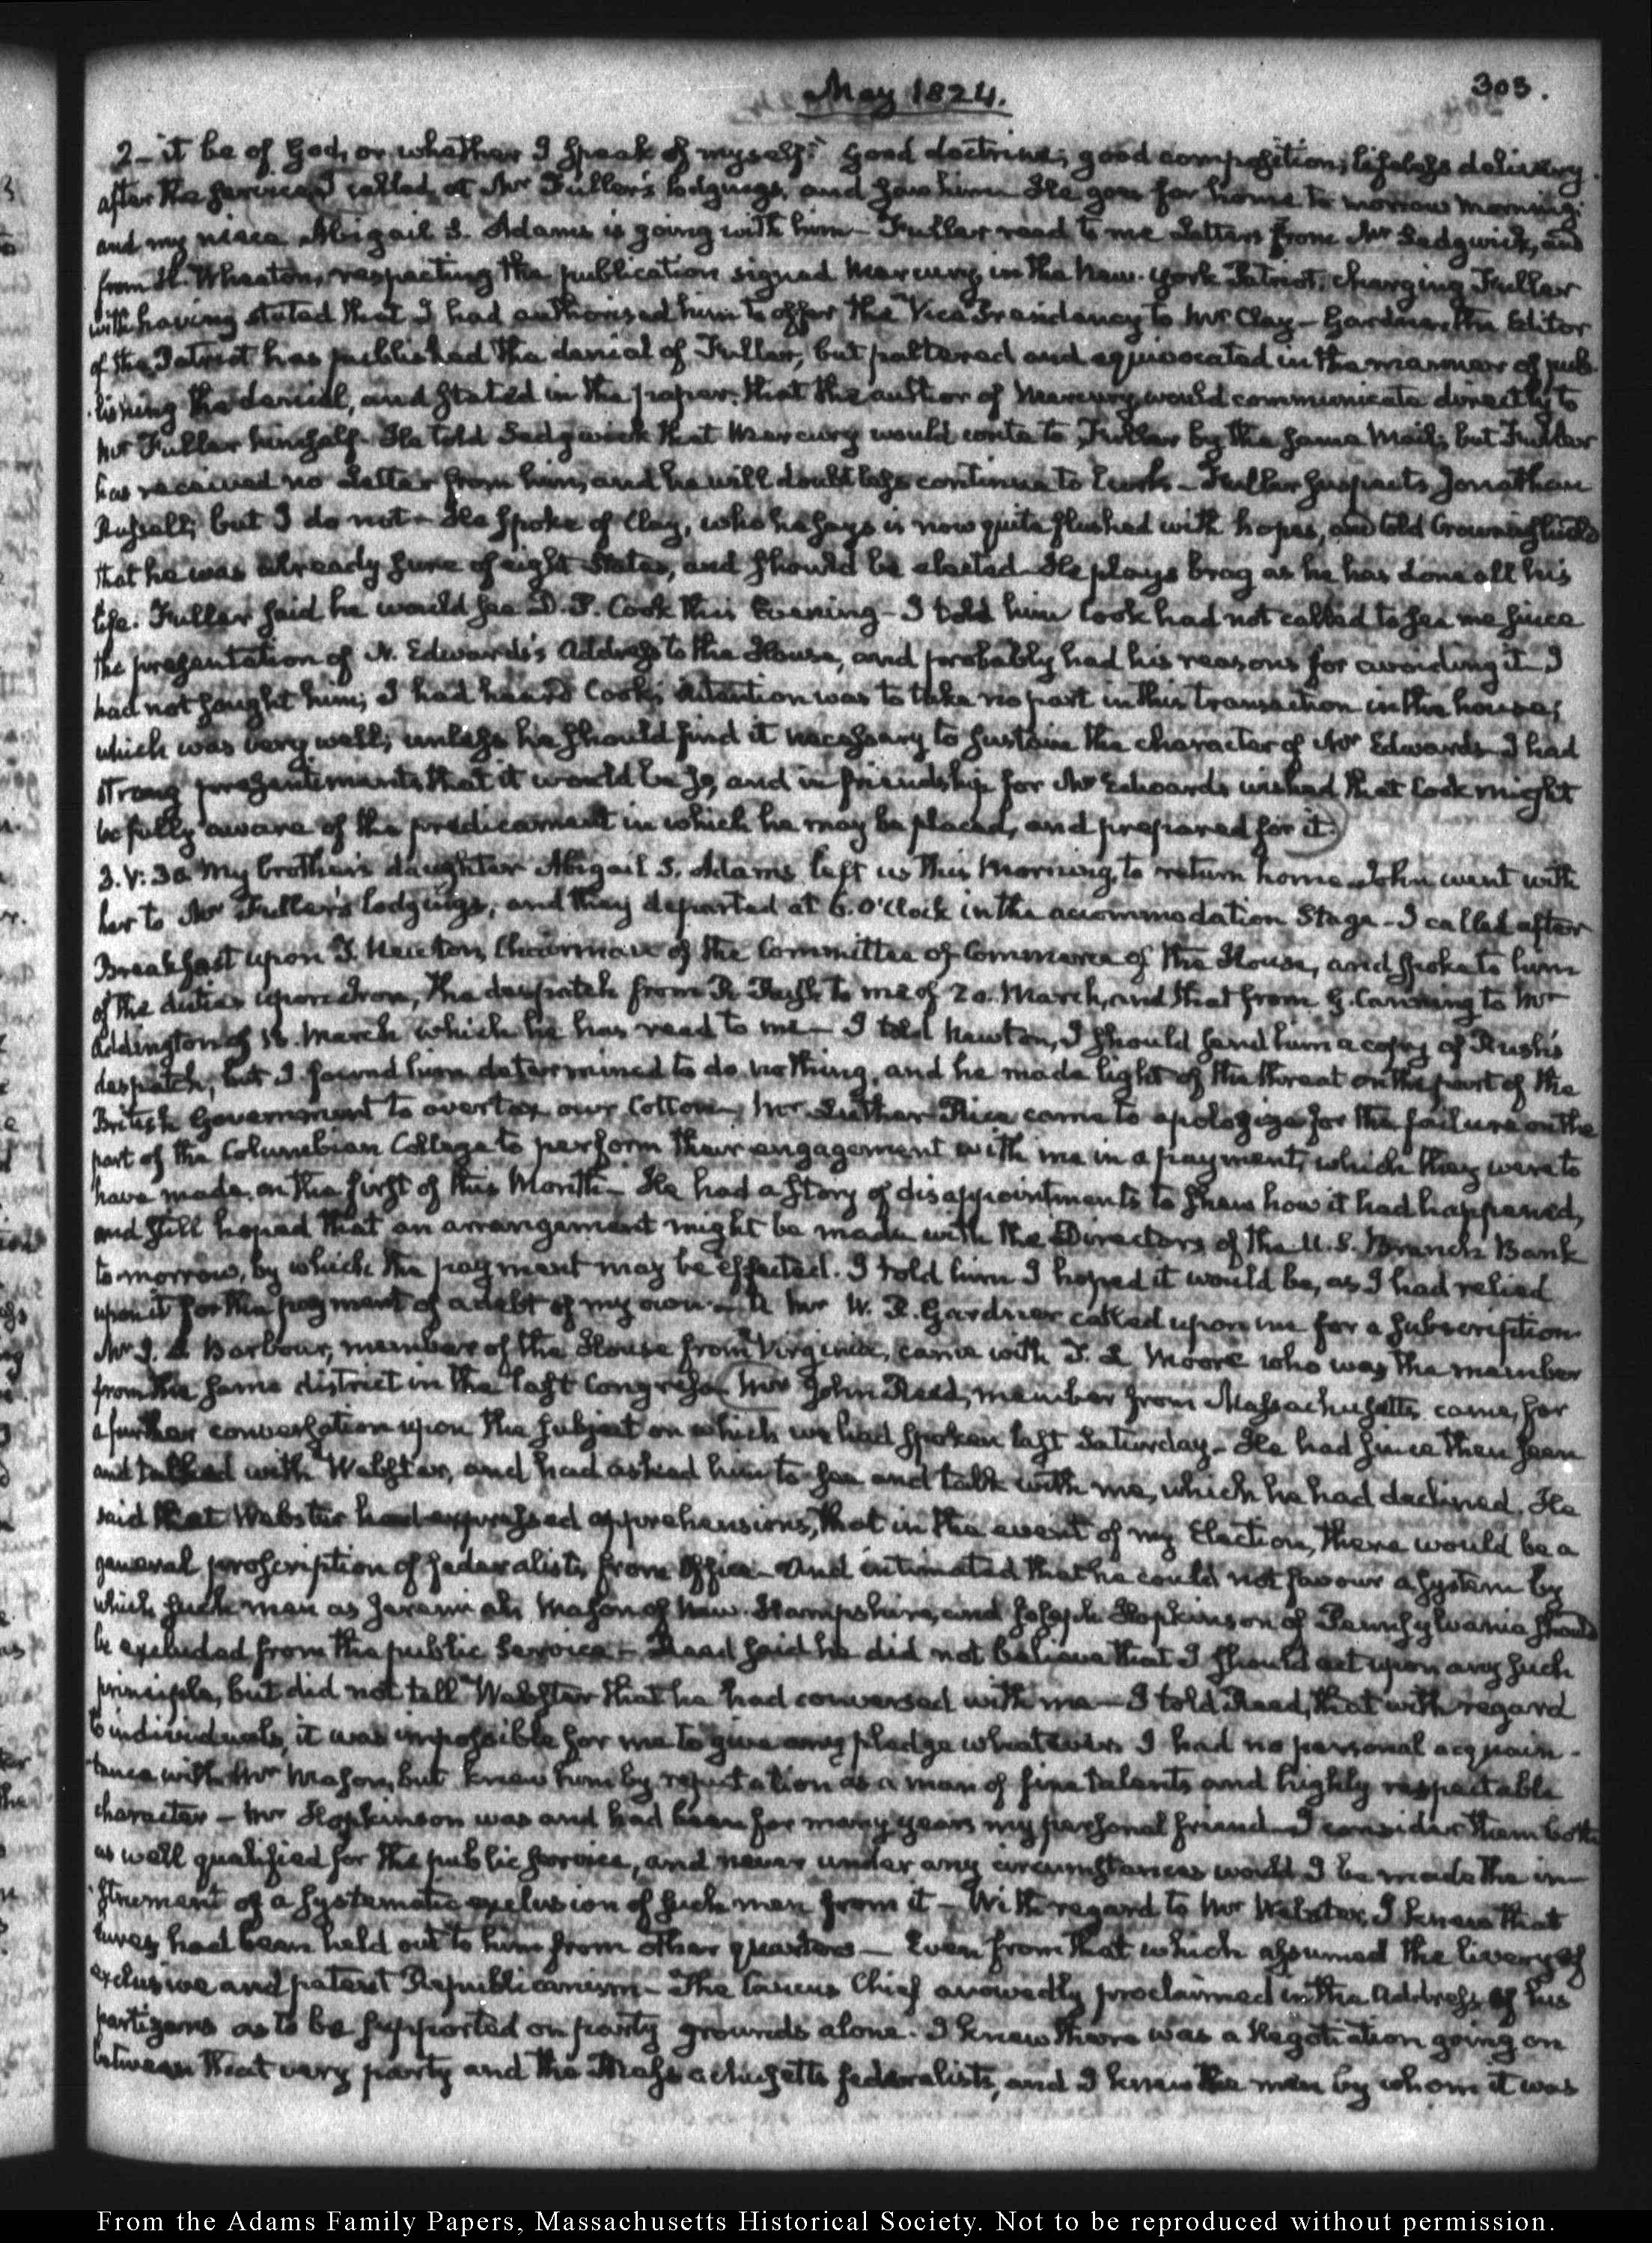 May 1824.
303.
2- it be of God, or whether I speak of myself." Good doctrine; good composition; lifeless delivery.
after the service I called at Mr Fuller's lodgings, and saw him. He goes for home to morrow morning;
and my niece Abigail S. Adams is going with him— Fuller read to me Letters from Mr Sedgwick, and
from H. Wheaton, respecting the publication signed Mercury in the New-York Patriot, charging Fuller
with having stated that I had authorised him to offer the Vice Presidency to Mr Clay— Gardner the Editor
of the Patriot has published the denial of Fuller, but paltered and equivocated in the manner of pub-
lishing the denial, and stated in the paper, that the author of Mercury would communicate directly to
Mr Fuller himself. He told Sedgwick that Mercury would write to Fuller by the same Mail; but Fuller
has received no Letter from him, and he will doubtless continue to lurk— Fuller suspects Jonathan
Russell; but I do not— He spoke of Clay, who he says is now quite flushed with hopes, and told
that he was already sure of eight States, and should be elected— He plays brag as he has done all his
life. Fuller said he would see D. P. Cook this Evening— I told him Cook had not called to see me since
the presentation of N. Edwards's Address to the House, and probably had his reasons for avoiding it— I
had not sought him; I had heard Cook's intention was to take no part in this transaction in the house;
which was very well; unless he should find it necessary to sustain the character of Mr Edwards— I had
strong presentiments that it would be so, and in friendship for Mr Edwards wished that Cook might
be fully aware of the predicament in which he may be placed, and prepared for it.
3. V:30. My brother's daughter Abigail S. Adams left us this Morning, to return home. John went with
her to Mr Fuller's lodgings, and they departed at 6. O'Clock in the accommodation Stage— I called after
Breakfast upon T. Newton, Chairman of the Committee of Commerce of the House, and spoke to him
of the duties upon Iron, the despatch from R. Rush to me of 20. March, and that from G. Canning to Mr
Addington of 18. March which he has read to me— I told Newton, I should send him a copy of Rush's
despatch; but I found him determined to do nothing, and he made light of the threat on the part of the
British Government to overtax our Cotton— Mr Luther Rice came to apologize for the failure on the
part of the Columbian College to perform their engagement with me in a payment, which they were to
have made on the first of this Month— He had a story of disappointments to shew how it had happened,
and still hoped that an arrangement might be made with the Directors of the U.S. Branch Bank
to-morrow, by which the payment may be effected. I told him I hoped it would be, as I had relied
upon it for the payment of a debt of my own— A Mr W. R. Gardner called upon me for a subscription.
Mr J. S. Barbour, member of the House from Virginia, came with T. L. Moore who was the member
from the same district in the last Congress— Mr John Reed, member from Massachusetts came, for
a further conversation upon the subject on which we had spoken last Saturday— He had since then seen
and talked with Webster, and had asked him to see and talk with me, which he had declined. He
said that Webster had expressed apprehensions, that in the event of my Election, there would be a
general proscription of federalists from Office— And intimated that he could not favour a system by
which such men as Jeremiah Mason of New-Hampshire, and Joseph Hopkinson of Pennsylvania should
be excluded from the public service— Reed said he did not believe that I should act upon any such
principle, but did not tell Webster that he had conversed with me— I told Reed, that with regard
to individuals, it was impossible for me to give any pledge whatever. I had no personal acquain-
tance with Mr Mason, but knew him by reputation as a man of fine talents and highly respectable
character— Mr Hopkinson was and had been for many years my personal friend— I consider them both
as well qualified for the public service, and never under any circumstances would I be made the in-
strument of a systematic exclusion of such men from it— With regard to Mr Webster, I knew that
lures had been held out to him from other quarters— Even from that which assumed the livery of
exclusive and patent Republicanism— The Caucus Chief avowedly proclaimed in the Address of his
partizans as to be supported on party grounds alone. I knew there was a Negotiation going on
between that very party and the Massachusetts federalists, and I knew the man by whom it was
From the Adams Family Papers, Massachusetts Historical Society. Not to be reproduced without permission.